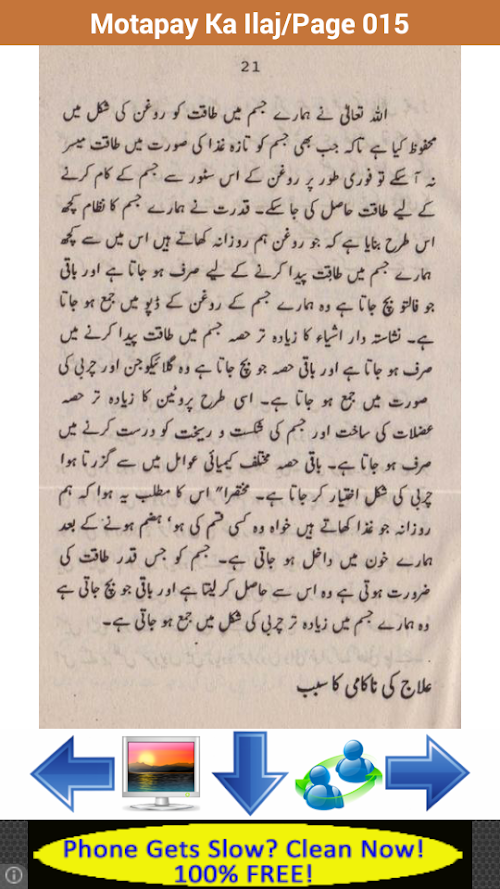 Motapay Ka Ilaj/Page 015
21
اللہ تعالیٰ نے ہمارے جسم میں طاقت کو روغن کی شکل میں
محفوظ کیا ہے تاکہ جب بھی جسم کو تازہ غذا کی صورت میں طاقت میسر
نہ آ سکے تو فوری طور پر روغن کے اس سٹور سے جسم کے کام کرنے
کے لیے طاقت حاصل کی جا سکے۔ قدرت نے ہمارے جسم کا نظام کچھ
اس طرح بنایا ہے کہ جو روغن ہم روزانہ کھاتے ہیں اس میں سے کچھ
ہمارے جسم میں طاقت پیدا کرنے کے لیے صرف ہو جاتا ہے اور باقی
جو فالتو بچ جاتا ہے وہ ہمارے جسم کے روغن کے ڈپو میں جمع ہو جاتا
ہے۔ نشاستہ دار اشیاء کا زیادہ تر حصہ جسم میں طاقت پیدا کرنے میں
صرف ہو جاتا ہے اور باقی حصہ جو بچ جاتا ہے وہ گلائیکوجن اور چربی کی
صورت میں جمع ہو جاتا ہے۔ اسی طرح پروٹین کا زیادہ تر حصہ
عضلات کی ساخت اور جسم کی شکست و ریخت کو درست کرنے میں
صرف ہو جاتا ہے۔ باقی حصہ مختلف کیمیائی عوامل میں سے گزرتا ہوا
چربی کی شکل اختیار کر جاتا ہے۔ مختصراً" اس کا مطلب یہ ہوا کہ ہم
روزانہ جو غذا کھاتے ہیں خواہ وہ کسی قسم کی ہو' ہضم ہونے کے بعد
ہمارے خون میں داخل ہو جاتی ہے۔ جسم کو جس قدر طاقت کی
ضرورت ہوتی ہے وہ اس سے حاصل کر لیتا ہے اور باقی جو بچ جاتی ہے
وہ ہمارے جسم میں زیادہ تر چربی کی شکل میں جمع ہو جاتی ہے۔
علاج کی ناکامی کا سبب
Phone Gets Slow? Clean Now!
100% FREE!